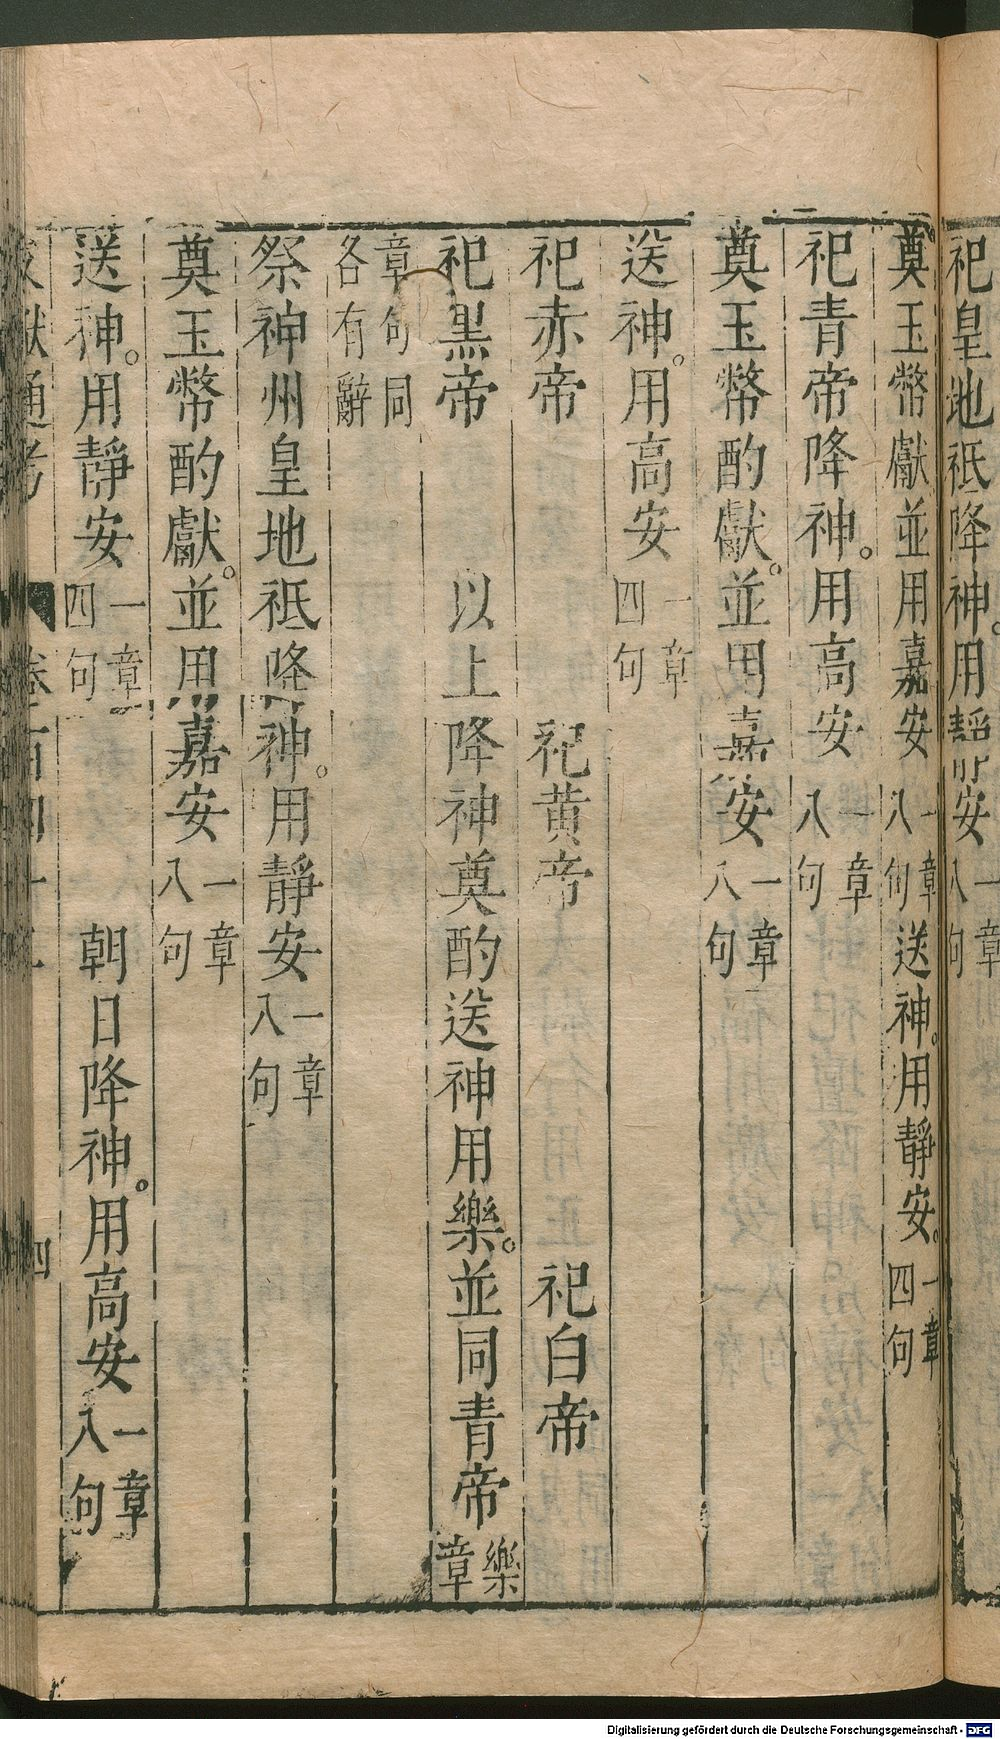 祀皇地祇降神。用靜安一章八句
奠玉幣獻並用嘉安一章八句送神。用靜安。一章四句
祀青帝降神。用高安一章八句
奠玉幣酌獻。並用嘉安一章八句
送神。用高安一章四句
祀赤帝　祀黃帝　祀白帝
祀黑帝　以上降神奠酌送神用樂。並同青帝樂章
章句同各有辭
祭神州皇地祇降神。用靜安一章八句
奠玉幣酌獻。並用嘉安一章八句
送神。用靜安一章四句　朝日降神。用高安一章八句
獻通考　四
Digitalisierung gefördert durch die Deutsche Forschungsgemeinschaft - DFG